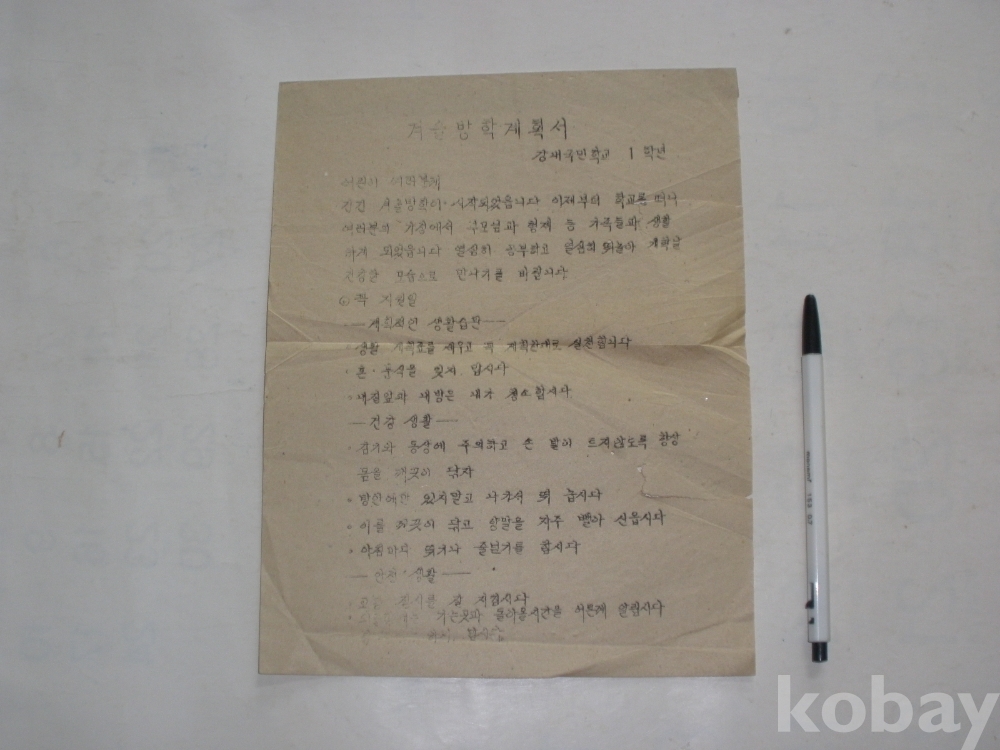 겨울방학계획서
강새국민학교 1 학년
어린이 여러분께
긴긴 겨울방학이 시작되었읍니다 이제부터 학교를 떠나
여러분의 가정에서 부모님과 형제 등 가족들과 생활
하게 되었읍니다 열심히 공부하고 열심히 뛰놀아 개학날
건강한 모습으로 만나기를 바랍니다
꼭 지킬일
—계획적인 생활습관—
· 생활 계획표를 세우고 꼭 계획한대로 실천합시다
· 혼·분식을 잊지 맙시다
· 내집앞과 내방은 내가 청소합시다
—건강 생활—
· 감기와 동상에 주의하고 손 발이 트지않도록 항상
몸을 깨끗이 닦자
· 방안에만 있지말고 나가서 뛰 놉시다
· 이를 깨끗이 닦고 양말을 자주 빨아 신읍시다
· 아침마다 뛰거나 줄넘기를 합시다
—안전 생활—
· 질서를 잘 지킵시다
· 가는곳과 돌아올시간을 어른께 알립시다
맙시다
kobay